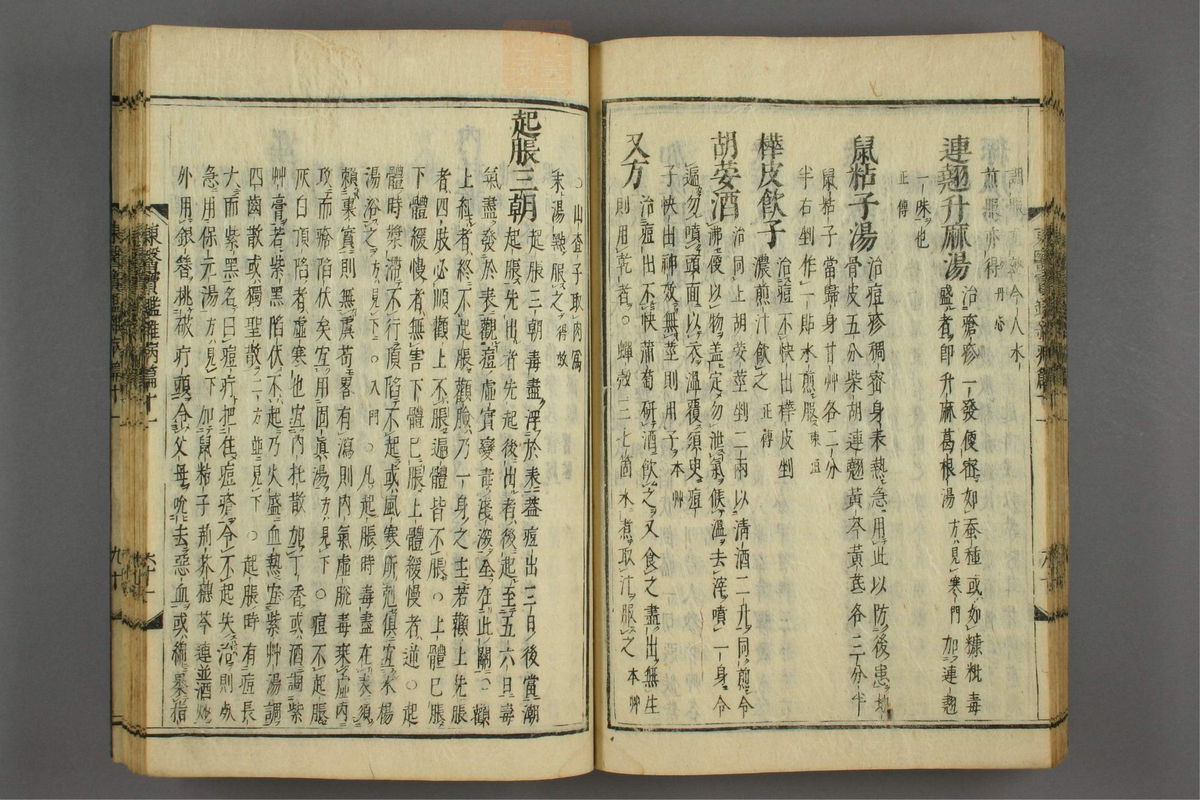 今人水
煎服亦得 丹心
連翹升麻湯 治瘡疹一發便密如蚕種或如糠粃毒
盛者即升麻葛根湯 方見寒門 加連翹
一味也
正傳
鼠粘子湯 治痘疹稠密身表熱急用此以防後患地
骨皮五分柴胡連翹黃芩黃芪各二分半
鼠粘子當歸身甘艸各二分
半右剉作一貼水煎服 東垣
樺皮飲子 治痘不快出樺皮剉
濃煎汁飲之 正傳
胡荽酒 治同上胡荽莖剉二兩以清酒二升同煎令
沸便以物盖定勿泄氣候溫去滓噴一身令
遍勿噴頭面以衣溫覆須臾痘
子快出神效無莖則用子 本艸
又方 治痘出不快蕭萄研酒飲之又食之盡出無生
則用乾者○蟬殼三七箇水煮取汁服之 本艸
○山査子取肉爲
末湯點服之 得效
起脹三朝 起脹三朝毒盡浮於表盖痘出三日後當潮
起脹先出者先起後出者後起至五六日毒
氣盡發於表觀痘虛實變毒淺深全在此關○顴
上紅者終不起脹觀臉乃一身之主若顴上先脹
者四肢必順觀上不脹遍體皆不脹○上體已脹
下體緩慢者無害下體已脹上體緩慢者逆○起
體時漿滯不行頂陷不起或風寒所剋俱宜水楊
湯浴之 方見下 ○入門 ○凡起脹時毒盡在表須
賴裏實則無虞苟畧有瀉則內氣虛脫毒乘虛內
攻而瘡陷伏矣宜用固眞湯 方見下 ○痘不起脹
灰白頂陷者虛寒也宜內托散加丁香或酒調紫
艸膏若紫黑陷伏不起乃火盛血熱宜紫艸湯調
四齒散或獨聖散 二方並見下 ○起脹時有痘長
大而紫黑名曰痘疔把住痘瘡令不起失治則死
急用保元湯 方見下 加鼠粘子荊芥穗芩連並酒炒
外用銀簪挑破疔頭令父母吮去惡血或綿裹指